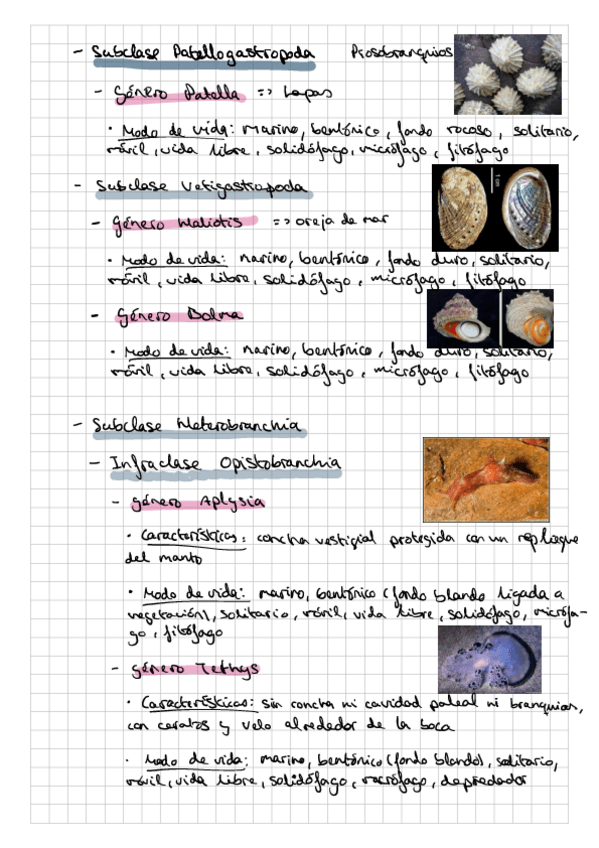 - Subclase Patellogastropoda Prosobranquios
- Género Patella => Lapas
• Modo de vida: marino, bentónico, fondo rocoso, solitario,
móvil, vida libre, solidófago, micrófago, fitófago
- Subclase Vetigastropoda
- Género Haliotis => oreja de mar
1 cm
• Modo de vida: marino, bentónico, fondo duro, solitario,
móvil, vida libre, solidófago, micrófago, fitófago
- Género Bolma
• Modo de vida: marino, bentónico, fondo duro, solitario,
móvil, vida libre, solidófago, micrófago, fitófago
- Subclase Heterobranchia
- Infraclase Opistobranchia
- género Aplysia
• Características: concha vestigial protegida con un repliegue
del manto
• Modo de vida: marino, bentónico (fondo blando ligada a
vegetación), solitario, móvil, vida libre, solidófago, micrófa-
go, fitófago
- género Tethys
• Características: sin concha ni cavidad paleal ni branquias,
con ceratos y velo alrededor de la boca
• Modo de vida: marino, bentónico (fondo blando), solitario,
móvil, vida libre, solidófago, macrófago, depredador